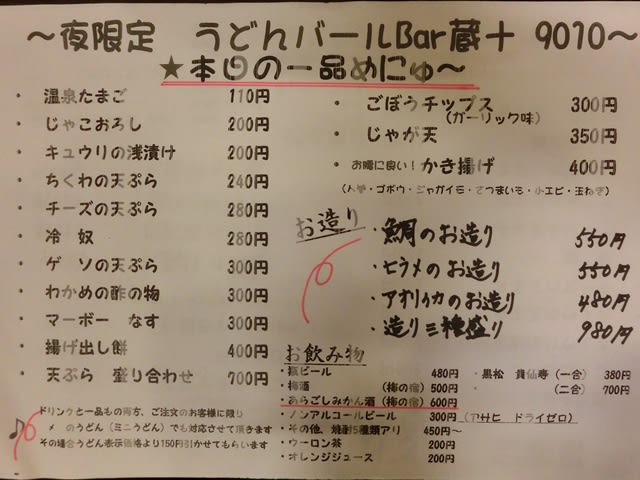 ～夜限定 うどんバールBar蔵十 9010～
★本日の一品めにゅ～
・ 温泉たまご 110円
・ じゃこおろし 200円
・ キュウリの浅漬け 200円
・ ちくわの天ぷら 240円
・ チーズの天ぷら 280円
・ 冷 奴 280円
・ ゲソの天ぷら 300円
・ わかめの酢の物 300円
・ マーボー なす 300円
・ 揚げ出し餅 400円
・ 天ぷら 盛り合わせ 700円
ドリンクと一品もの両方、ご注文のお客様に限り
〆のうどん（ミニうどん）でも対応させて頂きます
その場合うどん表示価格より150円引かせてもらいます
・ ごぼうチップス 300円
（ガーリック味）
・ じゃが天 350円
・ お腸に良い！かき揚げ 400円
（人参・ゴボウ・ジャガイモ・さつまいも・小エビ・玉ねぎ）
お造り
・鯛のお造り 550円
・ヒラメのお造り 550円
・アオリイカのお造り 480円
・造り三種盛り 980円
お飲み物
・瓶ビール 480円
・梅酒 （梅の宿）500円
・あらごしみかん酒（梅の宿）600円
・ノンアルコールビール 300円（アサヒ ドライゼロ）
・その他、焼酎5種類アリ 450円～
・ウーロン茶 200円
・オレンジジュース 200円
・黒松 貴仙寿（一合） 380円
・ （二合） 700円